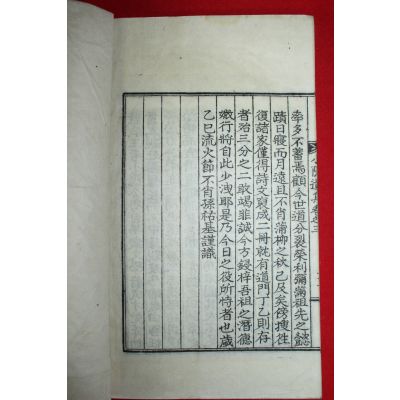 率多不蓄焉顧今世道分裂榮利彌滿祖先之懿
蹟日寢而月遠且不肖蒲柳之秋已及矣傍搜往
復諸家僅得詩文裒成二冊就有道門丁乙則存
者殆三分之二敢竭菲誠今方鋟梓吾祖之潛德
媺行將自此少洩耶是乃今日之役所恃者也歲
乙巳流火節不肖孫祐基謹識
遺集卷之三